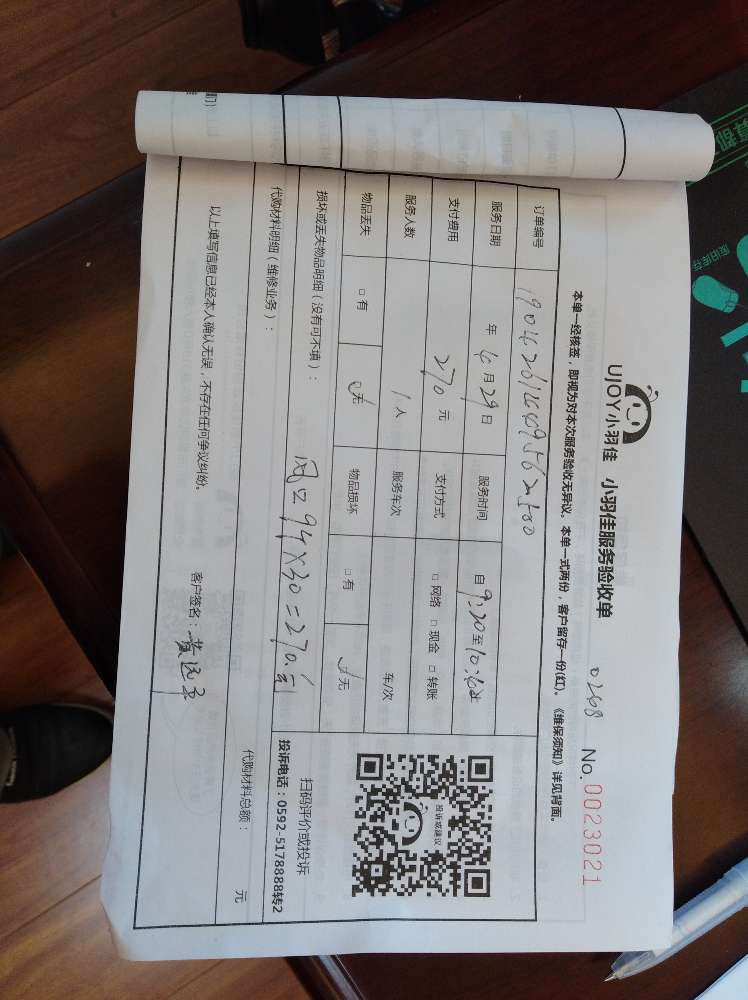 UJOY小羽佳 小羽佳服务验收单 0268 No.0023021
本单一经核签，即视为对本次服务验收无异议。本单一式两份，客户留存一份(红)。《维保须知》详见背面。
订单编号
服务日期 年 4月29日 服务时间 自9:20至10:
支付费用 270元 支付方式 □网络 □现金 □转账
服务人数 1人 服务车次 车/次
物品丢失 □有 无 物品损坏 □有 无
损坏或丢失物品明细（没有可不填）：
风口9个×30=270元
代购材料明细（维修业务）：
代购材料总额： 元
投诉或建议
扫码评价或投诉
投诉电话：0592-5178888转2
以上填写信息已经本人确认无误，不存在任何争议纠纷。
客户签名：